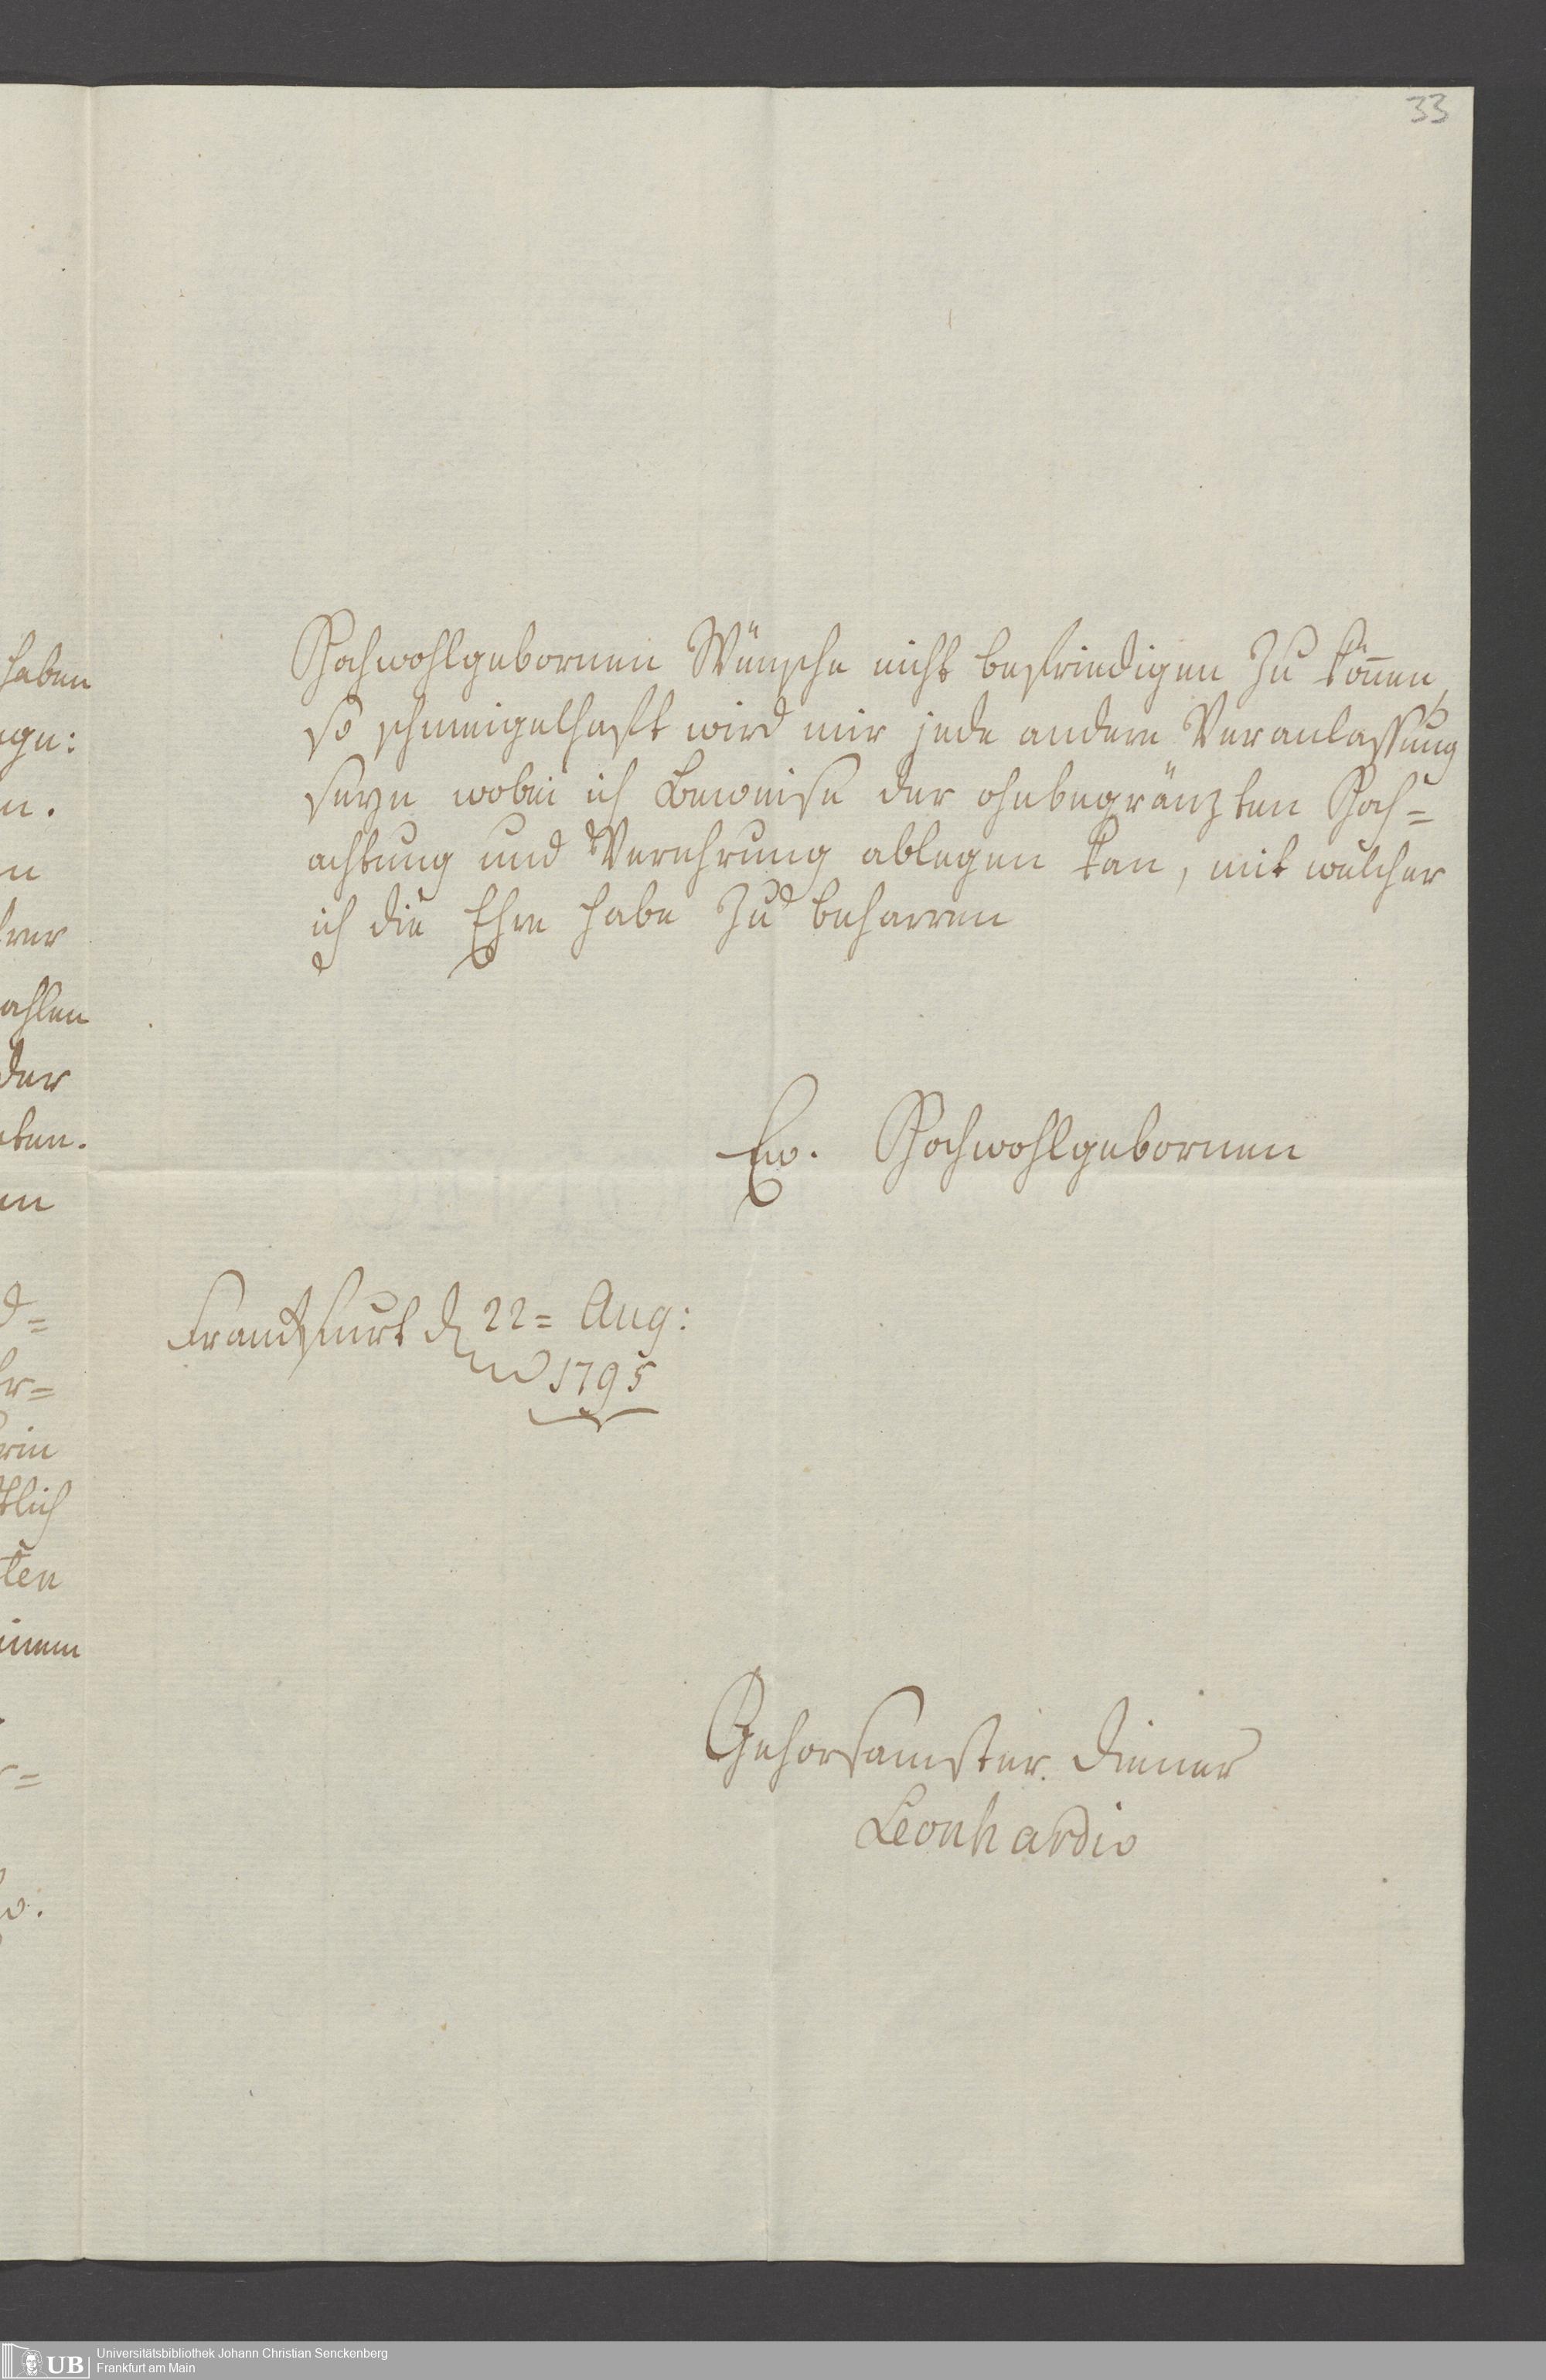 33
Hochwohlgebornen Wünsche nicht befriedigen zu kön̄en,
so schmeigelhaft wird mir jede andere Veranlassung
seyn wobei ich Beweise der ohnbegränzten Hoch=
achtung und Verehrung ablegen kan, mit welcher
ich die Ehre habe zu beharren
Ew. Hochwohlgebornen
Franckfurt d 22= Aug:
1795
Gehorsamster Diener
Leonhardi
haben
n.
ahlen
der
ten.
d=
tlich
ten
UB Universitätsbibliothek Johann Christian Senckenberg
Frankfurt am Main